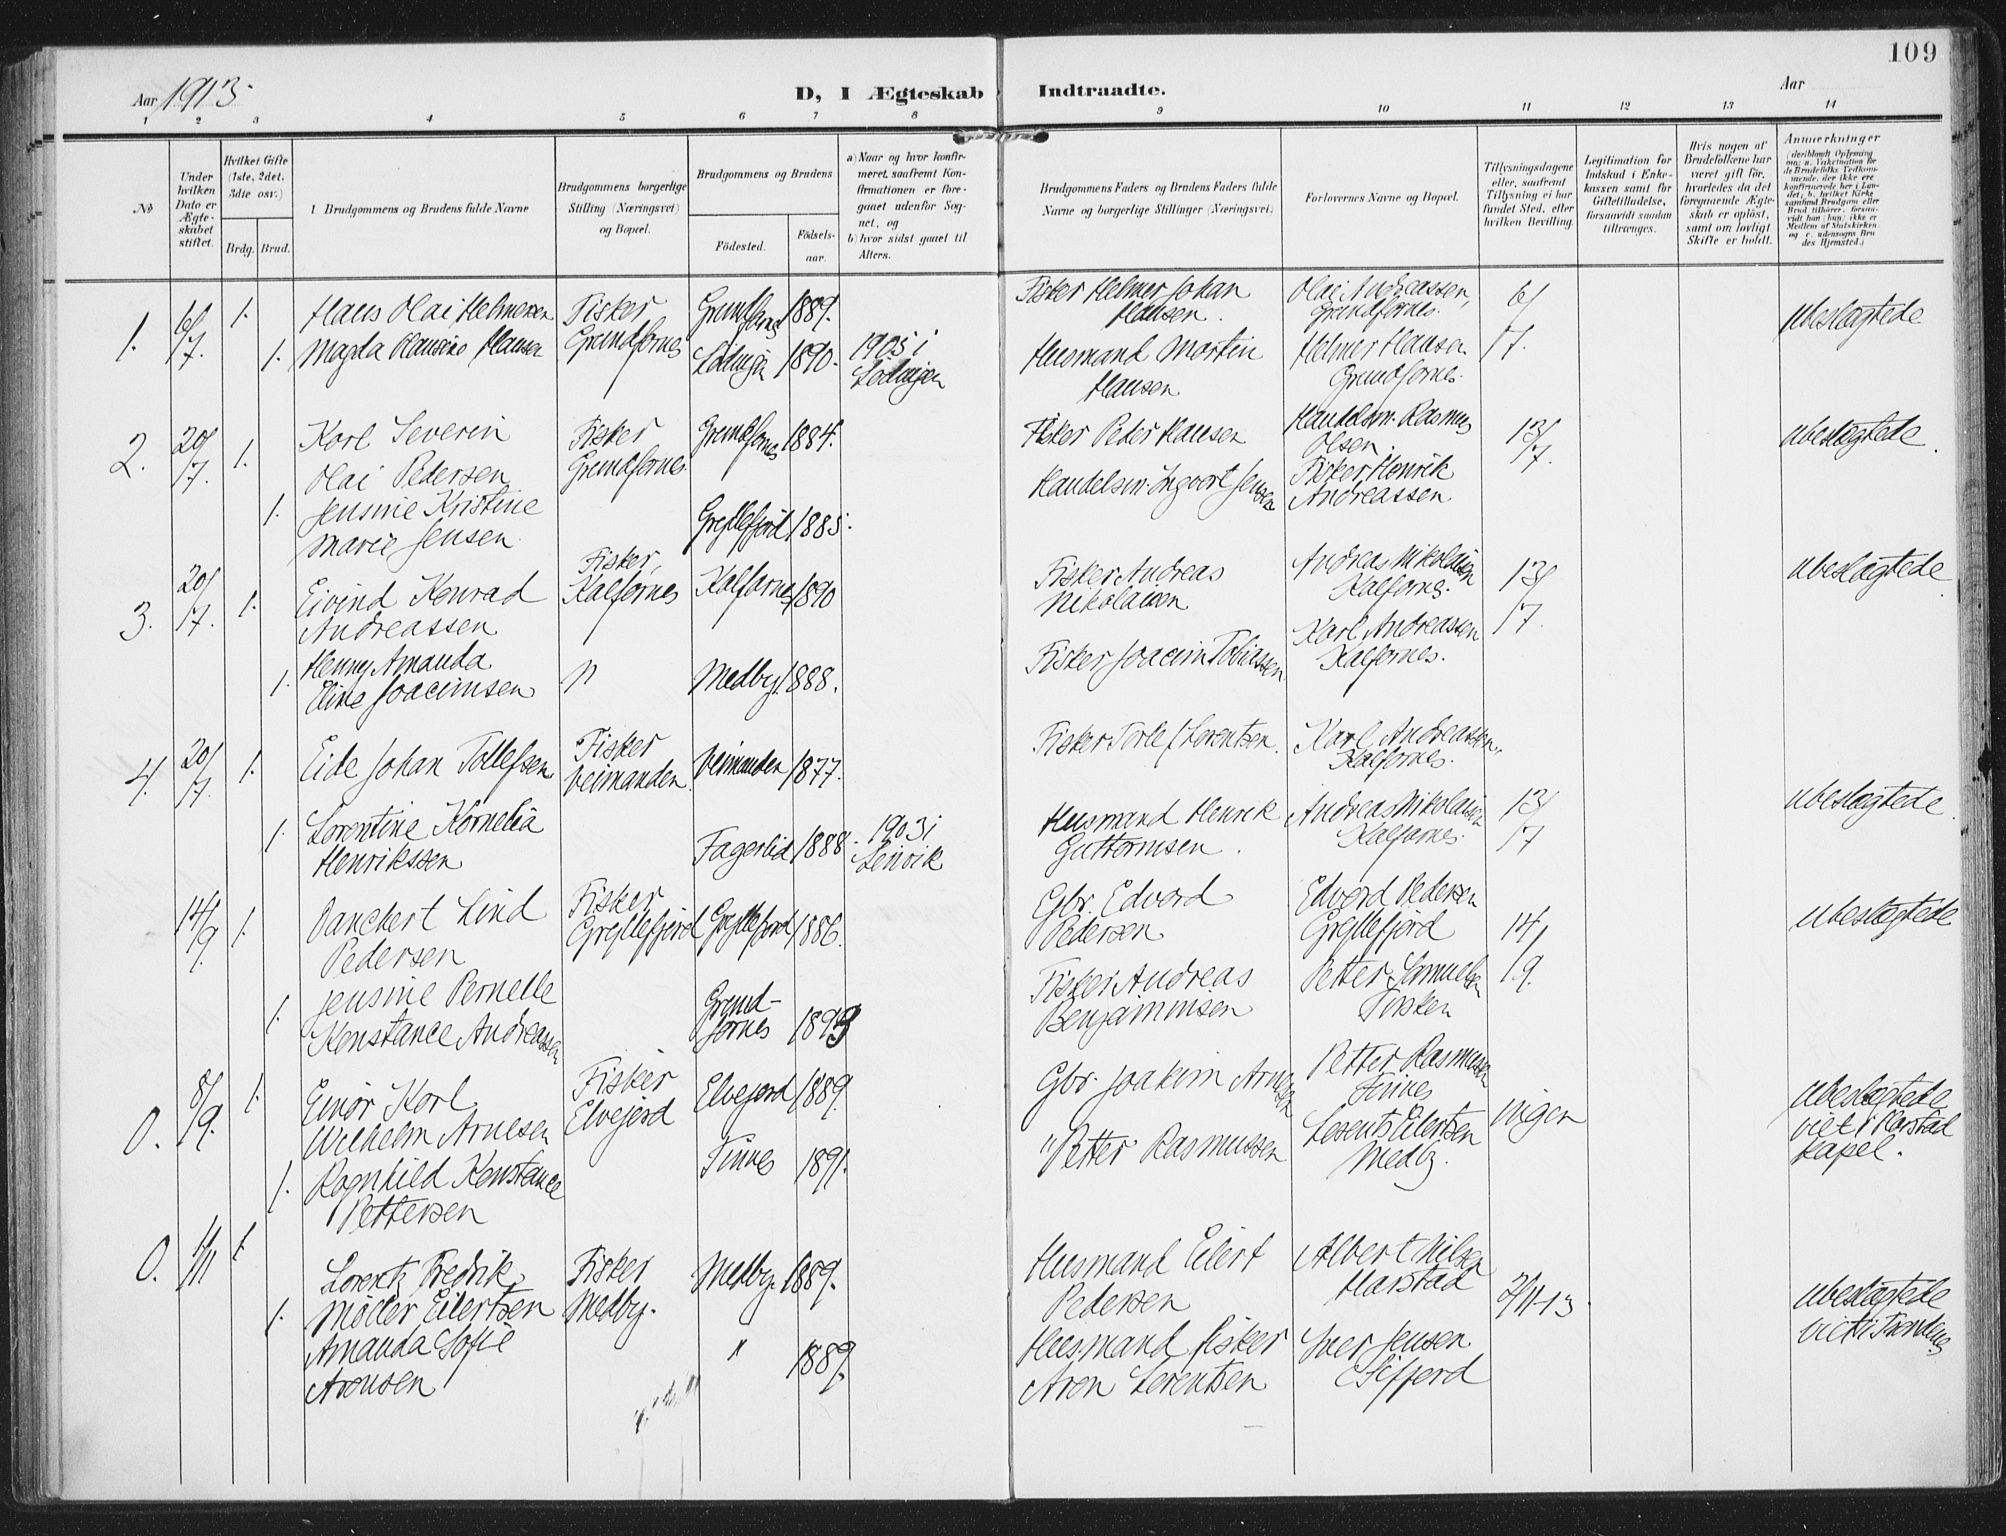 109
Aar 1913.
D, I Ægteskab Indtraadte.
Aar
1 2 3 4 5 6 7 8 9 10 11 12 13 14
No
Under hvilken Dato er Ægteskabet stiftet.
Hvilket Gifte (1ste, 2det, 3die osv.)
Brdg. Brud.
Brudgommens og Brudens fulde Navne
Brudgommens borgerlige Stilling (Næringsvei) og Bopæl.
Brudgommens og Brudens
Fødested.
Fødselsaar.
a) Naar og hvor konfirmeret, saafremt Konfirmationen er foregaaet udenfor Sognet, og
b) hvor sidst gaaet til Alters.
Brudgommens Faders og Brudens Faders fulde Navne og borgerlige Stillinger (Næringsvei)
Forlovernes Navne og Bopæl.
Tillysningsdagene eller, saafremt Tillysning ei har fundet Sted, efter hvilken Bevilling.
Legitimation for Indskud i Enkekassen samt for Giftetilladelse, forsaavidt saadan tiltrænges.
Hvis nogen af Brudefolkene har været gift før, hvorledes da det foregaaende Ægteskab er opløst, samt om lovligt Skifte er holdt.
Anmerkninger
1. 6/7. 1. Hans Olai Helmersen Fisker Grundfornes Grundfornes 1889. Fisker Helmer Johan Hansen. Olai Andreassen, Grundfornes. 6/7. ubeslægtede
1. Magda Hansine Hansen Lødingen 1890. 1905 i Lødingen Husmand Martin Hansen Helmer Hansen Grundfornes.
2. 20/7. 1. Karl Severin Olai Pedersen Fisker Grundfornes Grundfornes 1884. Fisker Peder Hansen Handelsm. Rasmus Olsen 13/7. ubeslægtede.
1. Jensine Kristine Marie Jensen Gryllefjord 1885. Handelsm. Ingvart Jensen Fisker Henrik Andreassen
3. 20/7. 1. Eivind Konrad Andreassen Fisker, Kalfornes Kalfarnes 1890 Fisker Andreas Nikolaisen Andreas Nikolaisen Kalfornes. 13/7. ubeslægtede.
1. Henny Amanda Eline Joacimsen " Medby 1888. Fisker Joacim Tobiassen Karl Andreassen Kalfornes.
4. 20/7. 1. Eide Johan Tollefsen Fisker Veimanden Veimanden 1877. Fisker Torlef Lorentsen. Karl Andreassen, Kalfornes. 13/7 ubeslægtede.
1. Lorentine Kornelia Henrikssen Fagerlid 1888. 1903 i Lenvik Husmand Henrik Guttormsen. Andreas Nikolaisen Kalfornes.
14/9. 1. Danckert Lind Pedersen Fisker Gryllefjord Gryllefjord 1886. Gbr. Edvard Pedersen Edvard Pedersen Gryllefjord 14/9. ubeslægtede
1. Jensine Pernelle Konstance Andreassen Grundfornes 1893 Fisker Andreas Benjaminsen Petter Samuelsen Finsken
0. 8/9. 1. Einar Karl Wilhelm Arnesen Fisker Elvejord Elvejord 1889. Gbr. Joakim Arnesen Petter Rasmussen Finnes ingen ubeslægtede viet i Harstad kapel.
1. Ragnhild Konstance Pettersen Finnes 1891. " Petter Rasmussen Lorents Eilertsen Medby.
0. 1/11 1. Lorentz Fredrik Møller Eilertsen Fisker Medby. Medby. 1889. Husmand Eilert Pedersen Albert Nilsen Harstad 2/11-13. ubeslægtede viet i Trondenes
1. Amanda Sofie Aronsen " 1889. Husmand fisker Aron Lorentsen Iver Jensen Gifjord